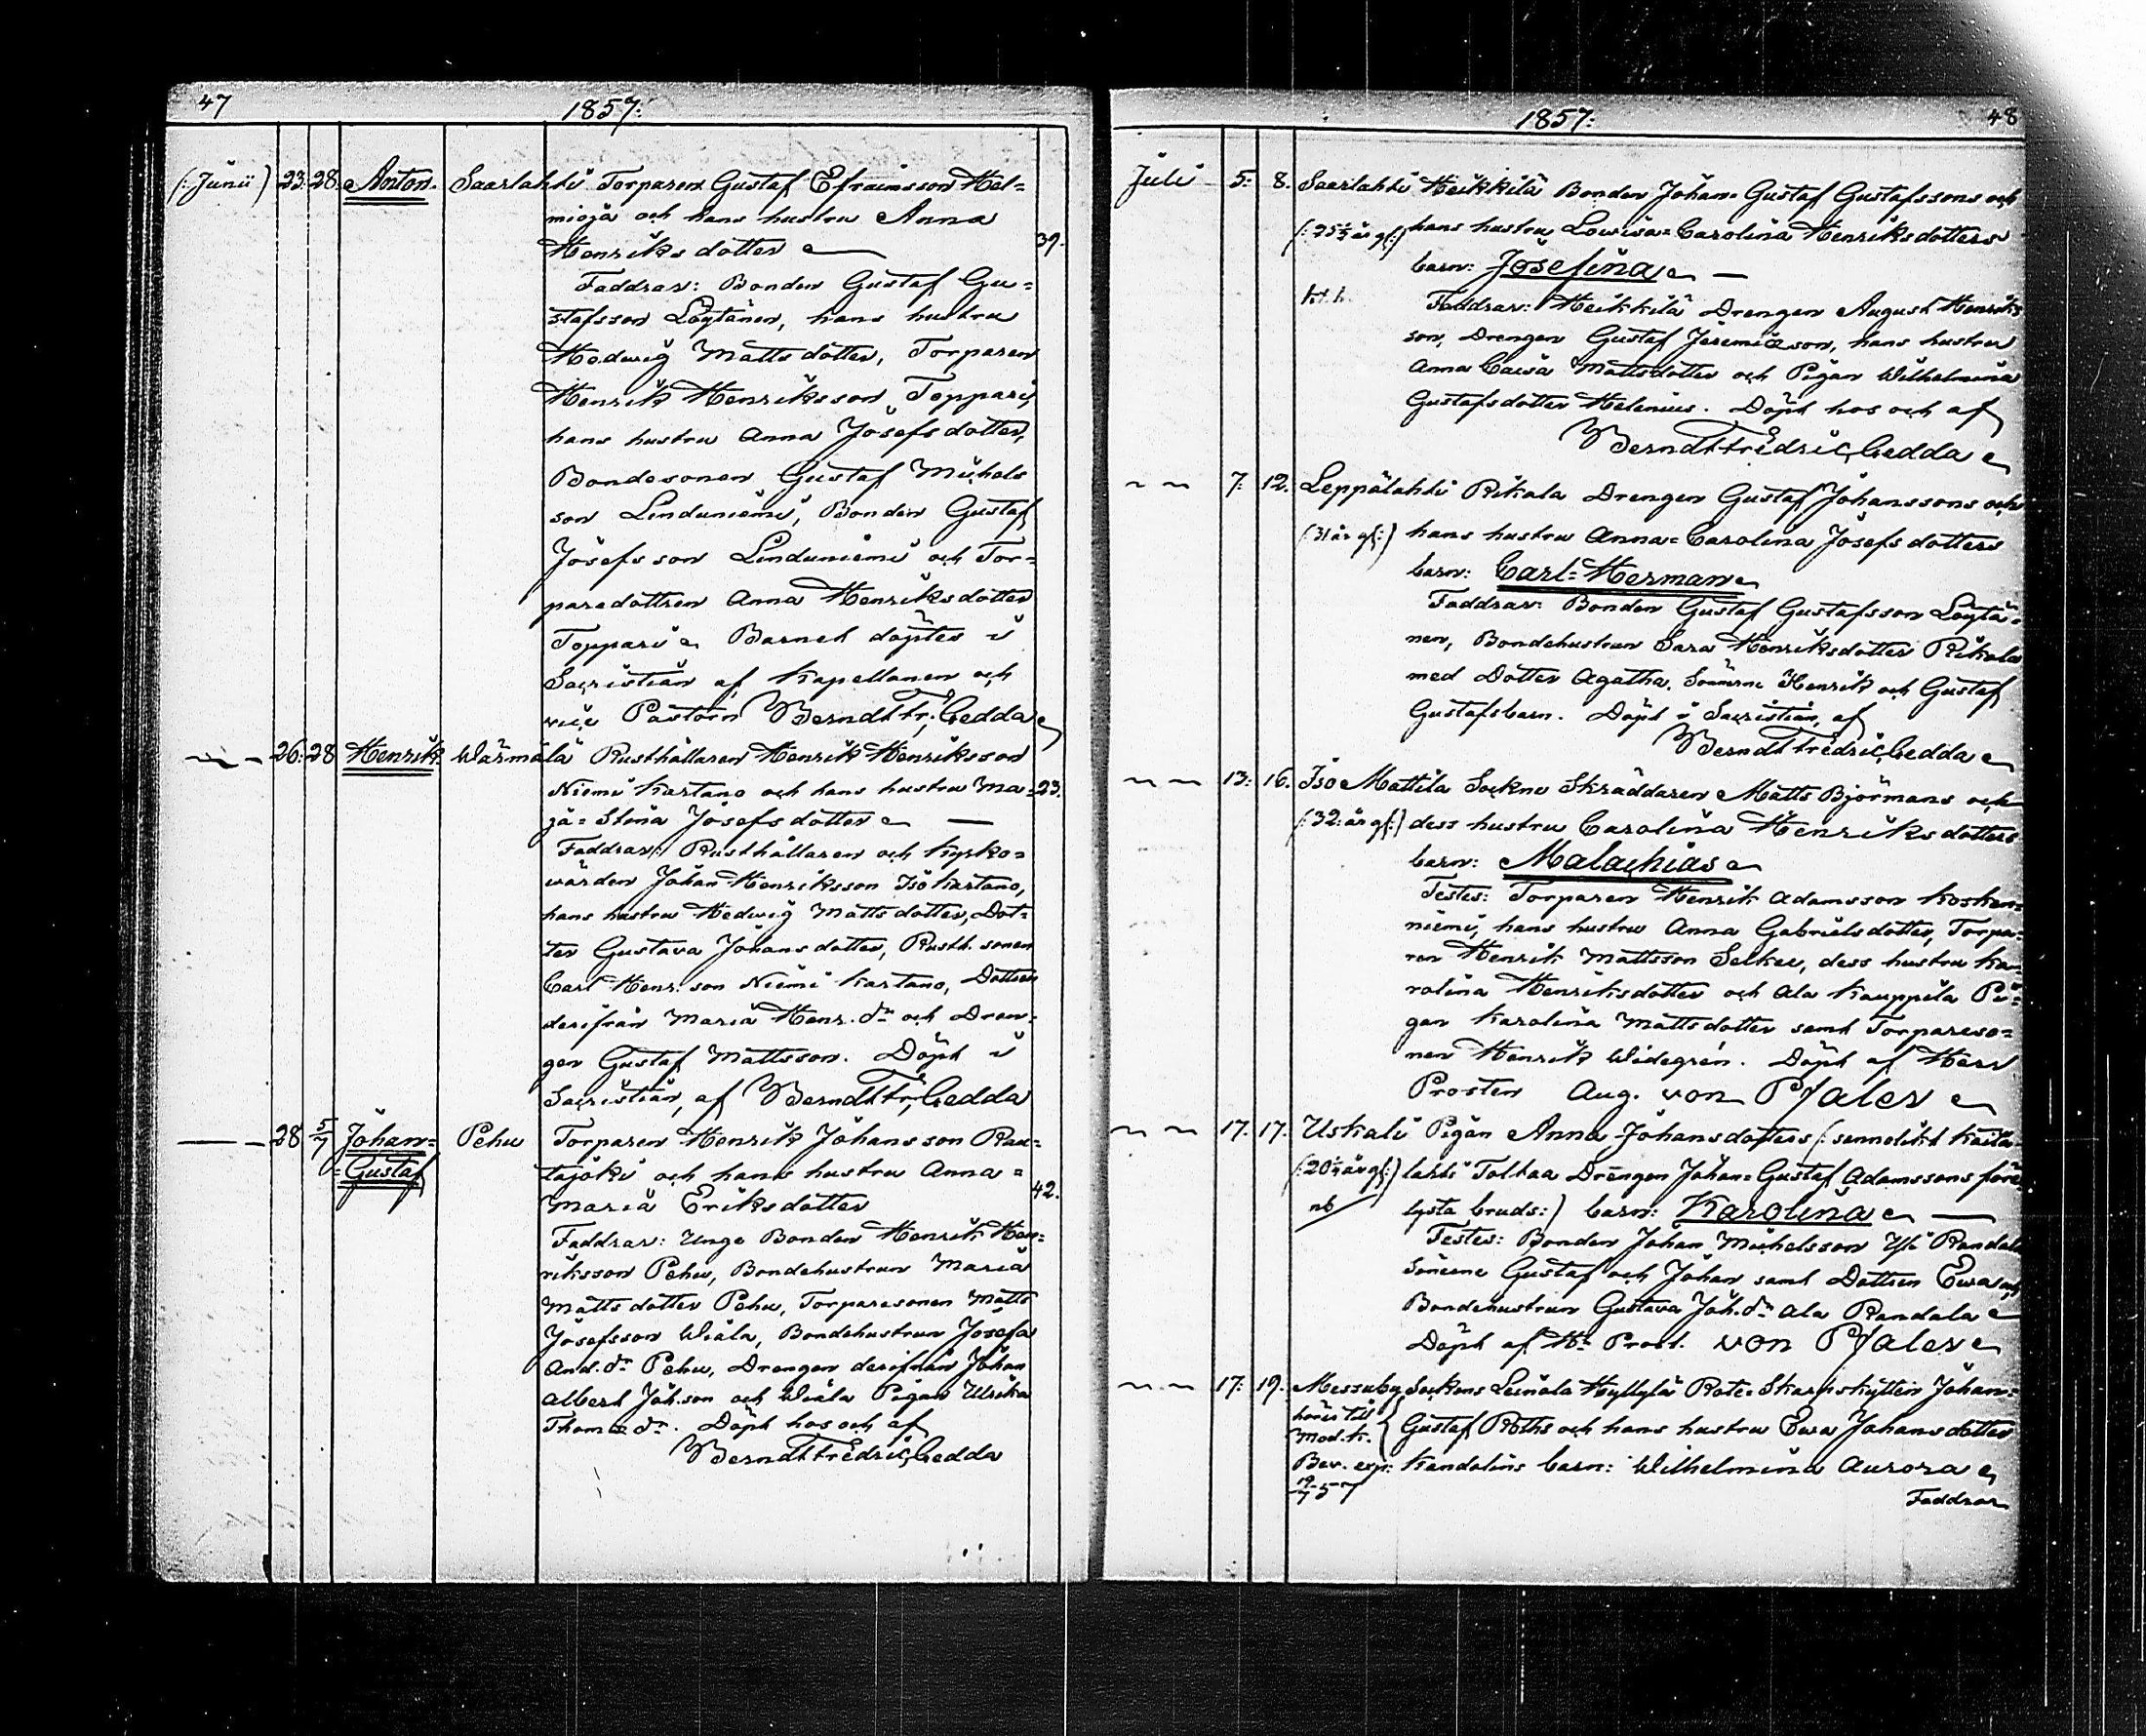 47
1857:
(:Junii) 23. 28. Anton. Saarlahti Torparen Gustaf Efraimsson Hel=
mioja och hans hustru Anna
Henriksdotter 39.
Faddrar: Bonden Gustaf Gu=
stafsson Löytänen, hans hustru
Hedwig Mattsdotter, Torparen
Henrik Henriksson Toppari,
hans hustru Anna Josefsdotter,
Bondesonen Gustaf Michels
son Linduniemi, Bonden Gustaf
Josefsson Linduniemi och Tor=
paredottren Anna Henriksdotter
Toppari. Barnet döptes i
Sacristian af Kapellanen och
vice Pastorn Berndt Fr. Cedda
26. 28 Henrik Wärmälä Rusthållaren Henrik Henriksson
Niemi Kartano och hans hustru Ma= 23.
ja=Stina Josefsdotter
Faddrar: Rusthållaren och Kyrko=
wärden Johan Henriksson Iso Kartano,
hans hustru Hedwig Mattsdotter, Dot=
ter Gustava Johansdotter, Rusth. sonen
Carl Henr. son Niemi Kartano, Dottren
derifrån Maria Henr. dr och Dren=
gen Gustaf Mattsson. Döpt i
Sacristian, af Berndt Fr. Cedda
28 5/7 Johan= Pehu Torparen Henrik Johansson Rau=
=Gustaf tajoki och hans hustru Anna=
Maria Eriksdotter 42.
Faddrar: Unge Bonden Henrik Hen=
riksson Pehu, Bondehustrun Maria
Mattsdotter Pehu, Torparesonen Matts
Josefsson Wiala, Bondehustrun Josefa
And. dr Pehu, Drengen derifrån Johan
Albert Joh.son och Wiala Pigan Ulrika
Thomæ dr. Döpt hos och af
Berndt Fredric Cedda
1857: 48
Juli 5. 8. Saarlahti Heikkilä Bonden Johan=Gustaf Gustafssons och
(:25½ år gl:) hans hustru Lowisa=Carolina Henriksdotters
barn: Josefina
Faddrar: Heikkilä Drengen August Henriks
son, Drengen Gustaf Jeremiæson, hans hustru
Anna Caisa Mattsdotter och Pigan Wilhelmina
Gustafsdotter Helenius. Döpt hos och af
Berndt Fredric Cedda
7. 12. Leppälahti Rikala Drengen Gustaf Johanssons och
(:31 år gl:) hans hustru Anna=Carolina Josefsdotters
barn: Carl=Herman
Faddrar: Bonden Gustaf Gustafsson Löytä=
nen, Bondehustrun Sara Henriksdotter Rikala
med Dotter Agatha, Sönerne Henrik och Gustaf
Gustafsbarn. Döpt i Sacristian, af
Berndt Fredric Cedda
13. 16. Iso Mattila Sockne Skräddaren Matts Björmans och
(:32. år gl:) dess hustru Carolina Henriksdotters
barn: Malachias
Testes: Torparen Henrik Adamsson Kosken=
niemi, hans hustru Anna Gabrielsdotter, Torpa=
ren Henrik Mattsson Selkee, dess hustru Ka=
rolina Henriksdotter och Ala Kauppila Pi=
gan Karolina Mattsdotter samt Torpareso=
nen Henrik Widegrén. Döpt af Herr
Prosten Aug. von Pfaler
17. 17. Uskali Pigan Anna Johansdotters (:sannolikt Kaita=
(:20¼ år gl:) lahti Tolkaa Drengen Johan=Gustaf Adamssons före=
nb lysta bruds:) barn: Karolina
Testes: Bonden Johan Michelsson Yli Randala
Sönerne Gustaf och Johan samt Dottren Ewa och
Bondehustrun Gustava Joh. dr Ala Randala
Döpt af Hr Prost. von Pfaler
17. 19. Messuby Sockens Leinola Hyllylä Rote=Skarpskytten Johan=
hörer till Gustaf Roths och hans hustru Ewa Johansdotter
Mod. k.
Bev. exp: Kandolins barn: Wilhelmina Aurora
19/7 57
Faddrar